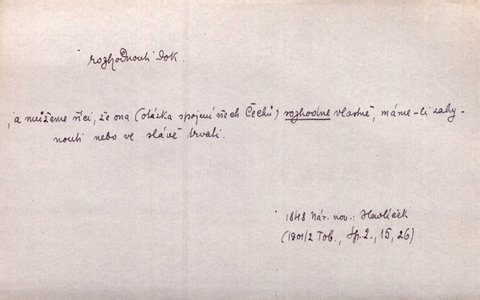 rozhodnouti dok.
, a můžeme říci, že ona (otázka spojení všech Čechů) rozhodne vlastně, máme-li zahy-
nouti nebo ve slávě trvati.
1848 Nár. nov. Havlíček
(1901/2 Tob., Sp. 2., 15, 26)